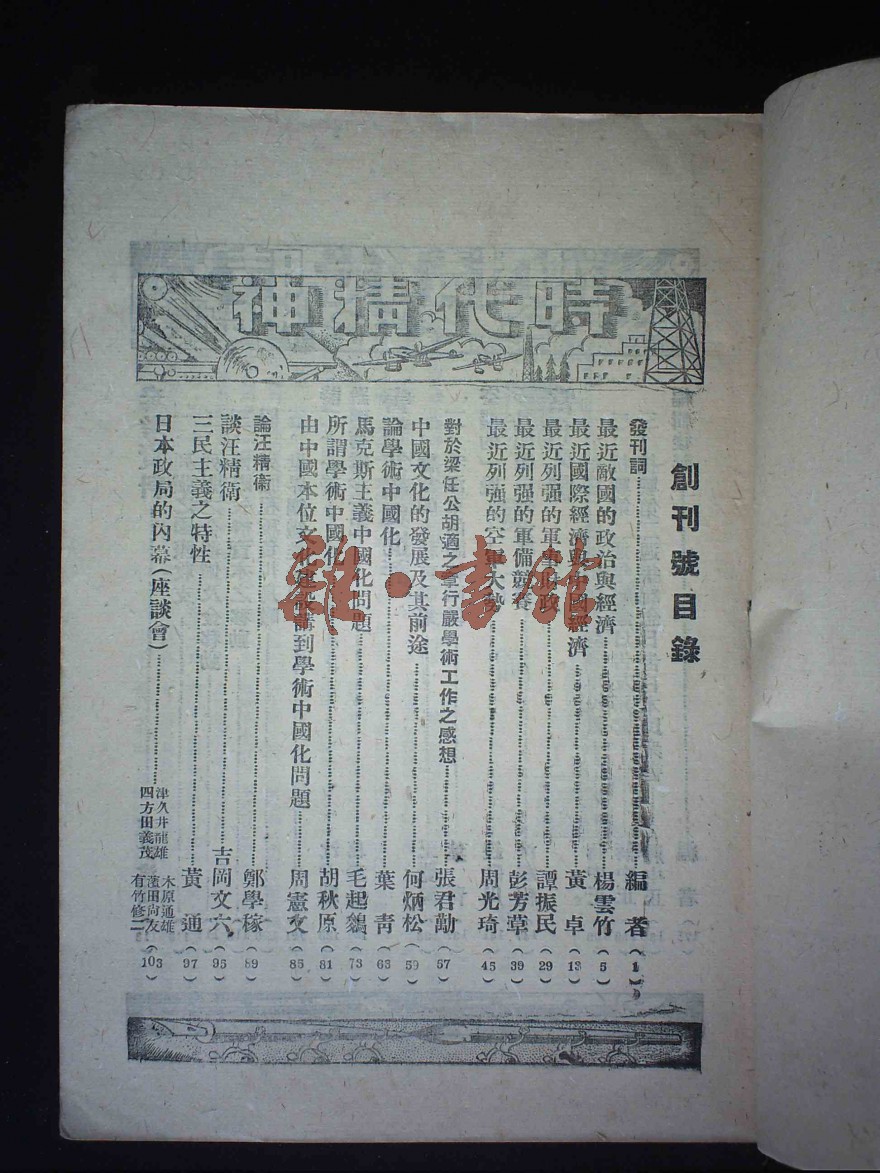 時代精神
創刊號目錄
發刊詞 編者 (1)
最近敵國的政治與經濟 楊雲竹 (5)
最近國際經濟與中國經濟 黃卓 (13)
最近列强的軍事財政 譚振民 (29)
最近列强的軍備競賽 彭芳草 (39)
最近列强的空軍大勢 周光琦 (45)
對於梁任公胡適之章行嚴學術工作之感想 張君勱 (57)
中國文化的發展及其前途 何炳松 (59)
論學術中國化 葉青 (63)
馬克斯主義中國化問題 毛起鵕 (73)
所謂學術中國化 胡秋原 (81)
由中國本位文化建設講到學術中國化問題 周憲文 (85)
論汪精衛 鄭學稼 (89)
談汪精衛 吉岡文六 (95)
三民主義之特性 黃通 (97)
日本政局的內幕(座談會) 津久井龍雄 四方田義茂 木原通雄 濱田尚友 有竹修二 (103)
雜·書館